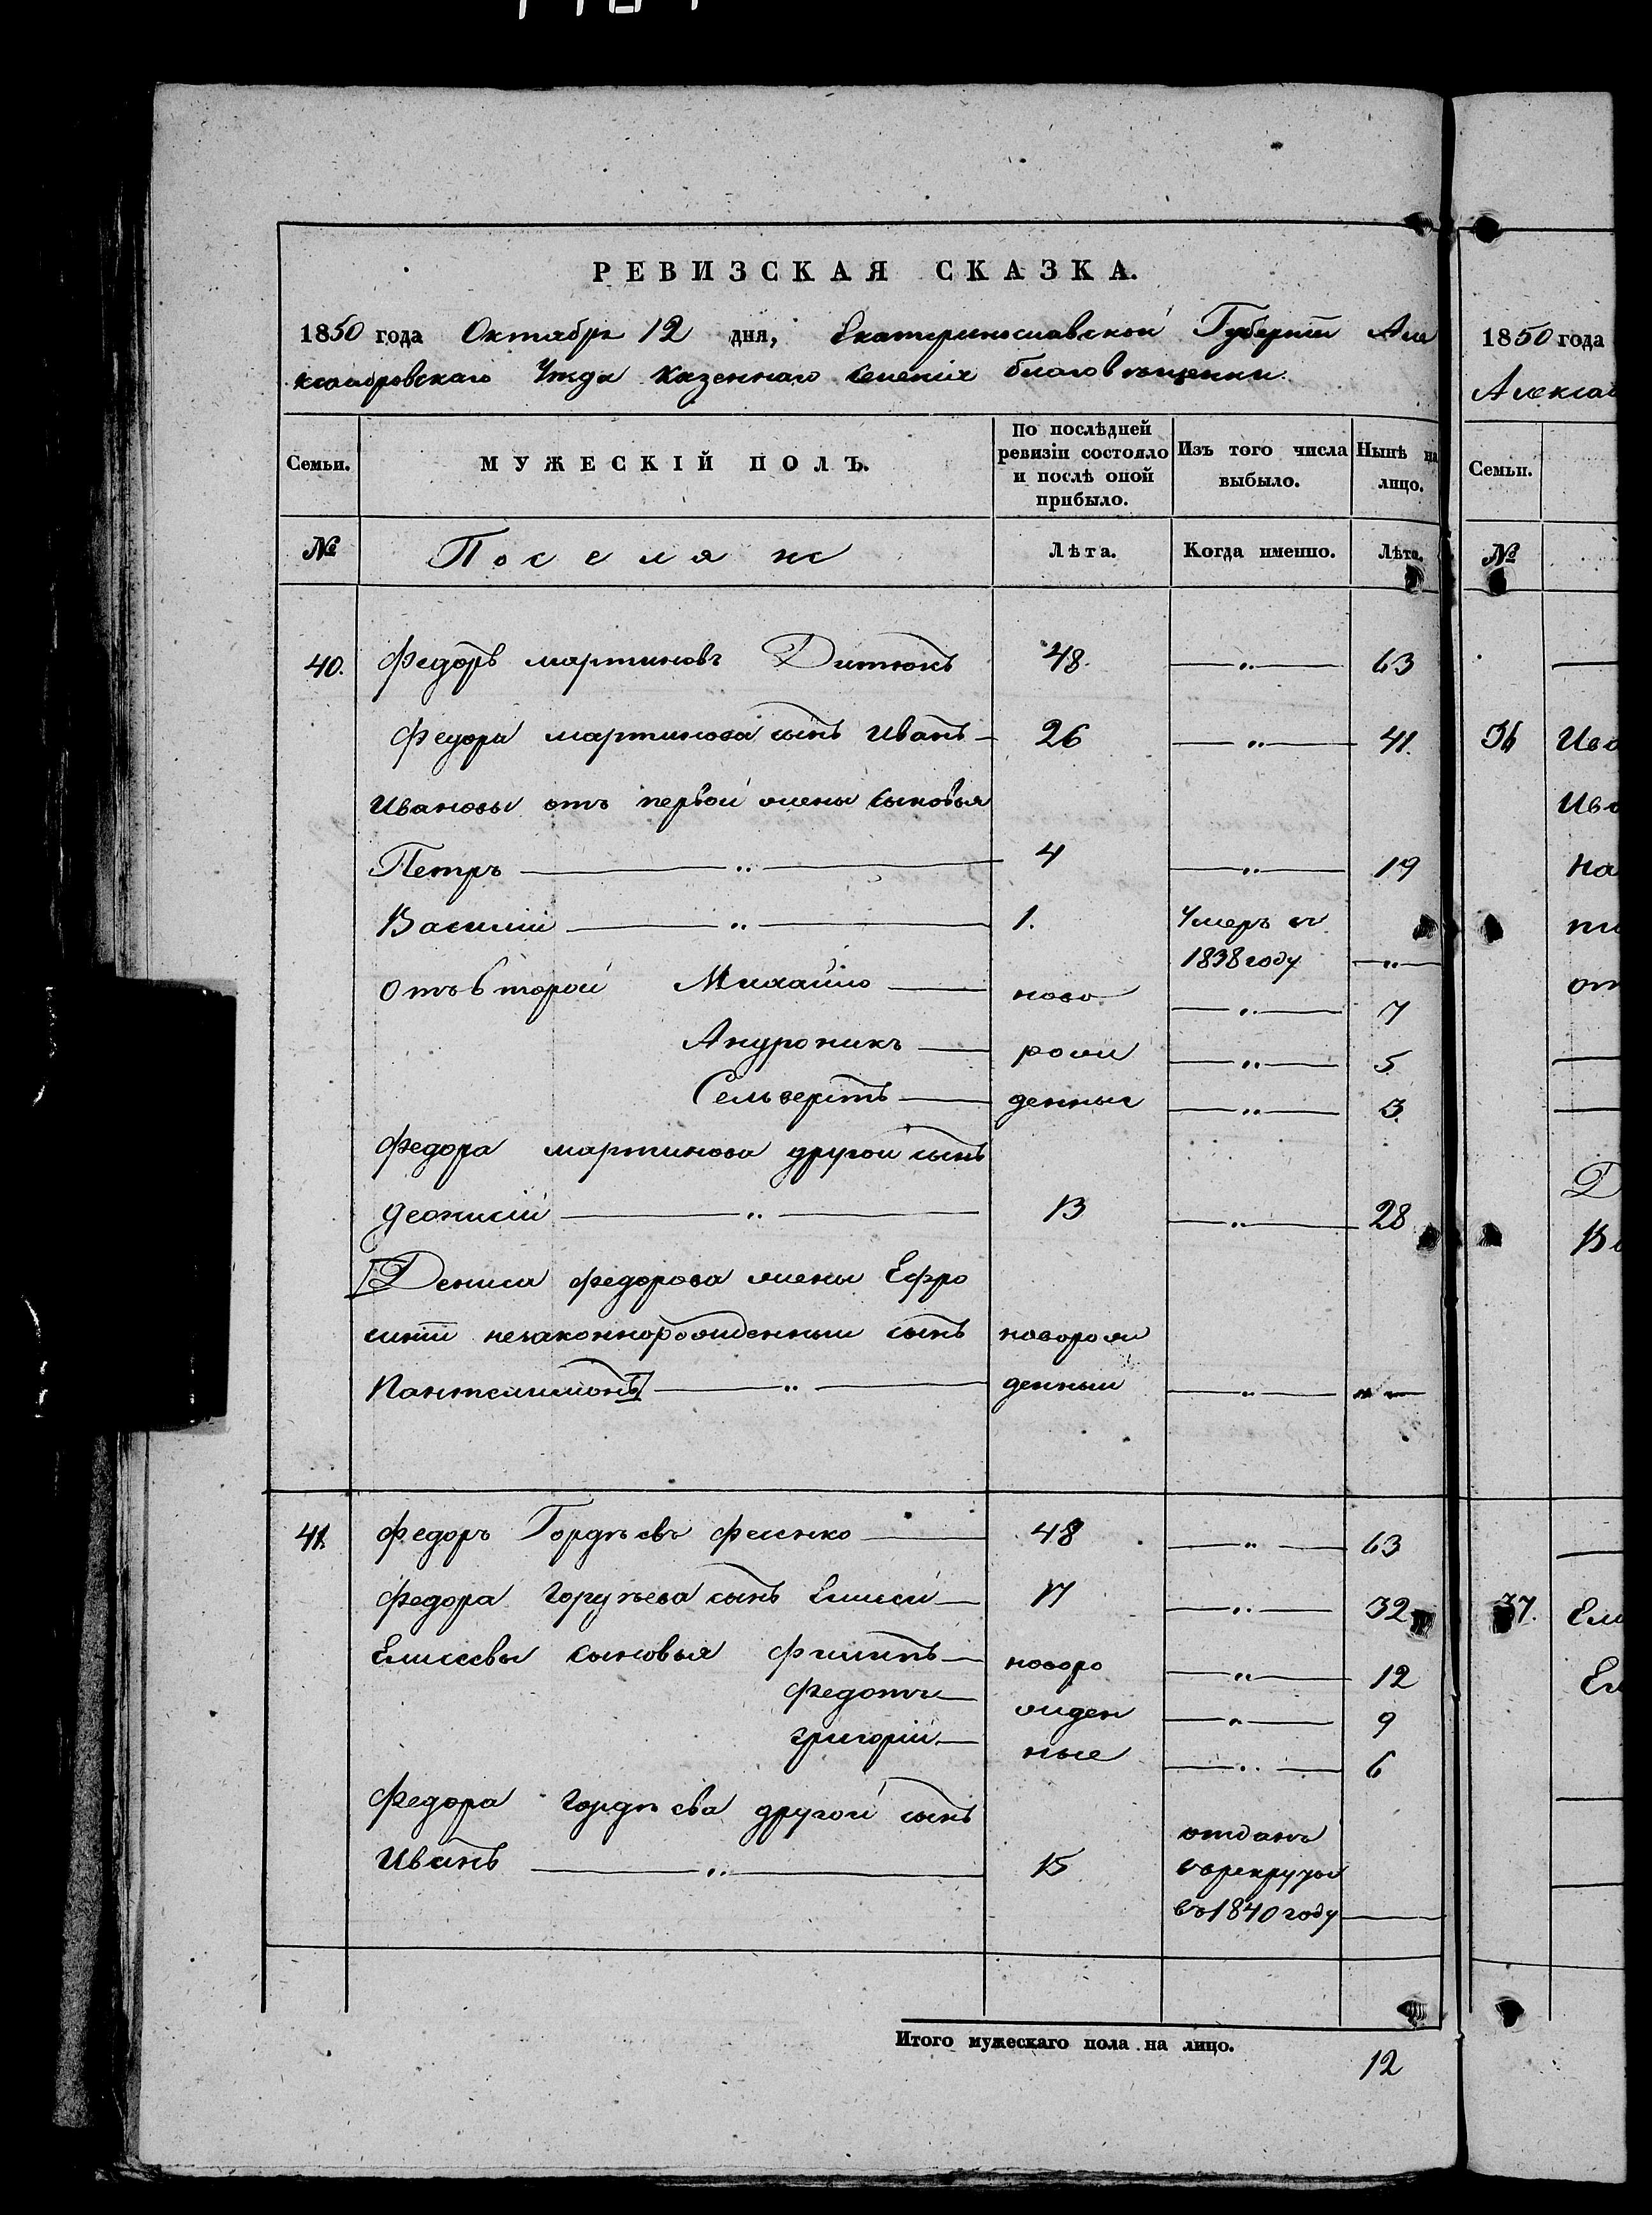 РЕВИЗСКАЯ СКАЗКА.
1850 года Октября 12 дня, Екатеринославской Губернiи Але
ксандровскаго Уѣзда Казеннаго Селенiя благовѣщенки
Семьи.
МУЖЕСКІЙ ПОЛЪ.
По послѣдней ревизіи состояло и послѣ оной прибыло.
Изъ того числа выбыло.
Нынѣ на лицо.
№
Поселян
Лѣта.
Когда именно.
Лѣта.
40. Федоръ мартиновъ Дитюкъ 48. —„— 63
Федора мартинова сынъ Иванъ — 26 —„— 41.
Ивановы отъ первой жены сыновья
Петръ —„— 4 —„— 19
Василiй —„— 1. Умеръ въ
1838 году —„—
отъ второй Михайло — ново —„— 7
Андроникъ — рож —„— 5
Сельверстъ — денные —„— 3.
Федора мартинова другой сынъ
Деонисiй —„— 13 —„— 28
[Дениса федорова жены Ефро
синiи незаконнорожденный сынъ новорож
Пантелимонъ] —„— денный —„— „—
41. Федоръ Гордѣевъ Фесенко — 48 —„— 63
Федора Гордѣева сынъ Елисей — 17 —„— 32
Елисеевы сыновья Филипъ — новоро —„— 12
Федотъ — жден —„— 9
григорiй — ные —„— 6
Федора Гордѣева другой сынъ
Иванъ —„— 15 отданъ
въ рекруты
въ 1840 году —
Итого мужескаго пола на лицо.
12
1850 года
Алексан
Семьи.
№
36 Ива
Ива
на
от
Д
37. Ели
Ел